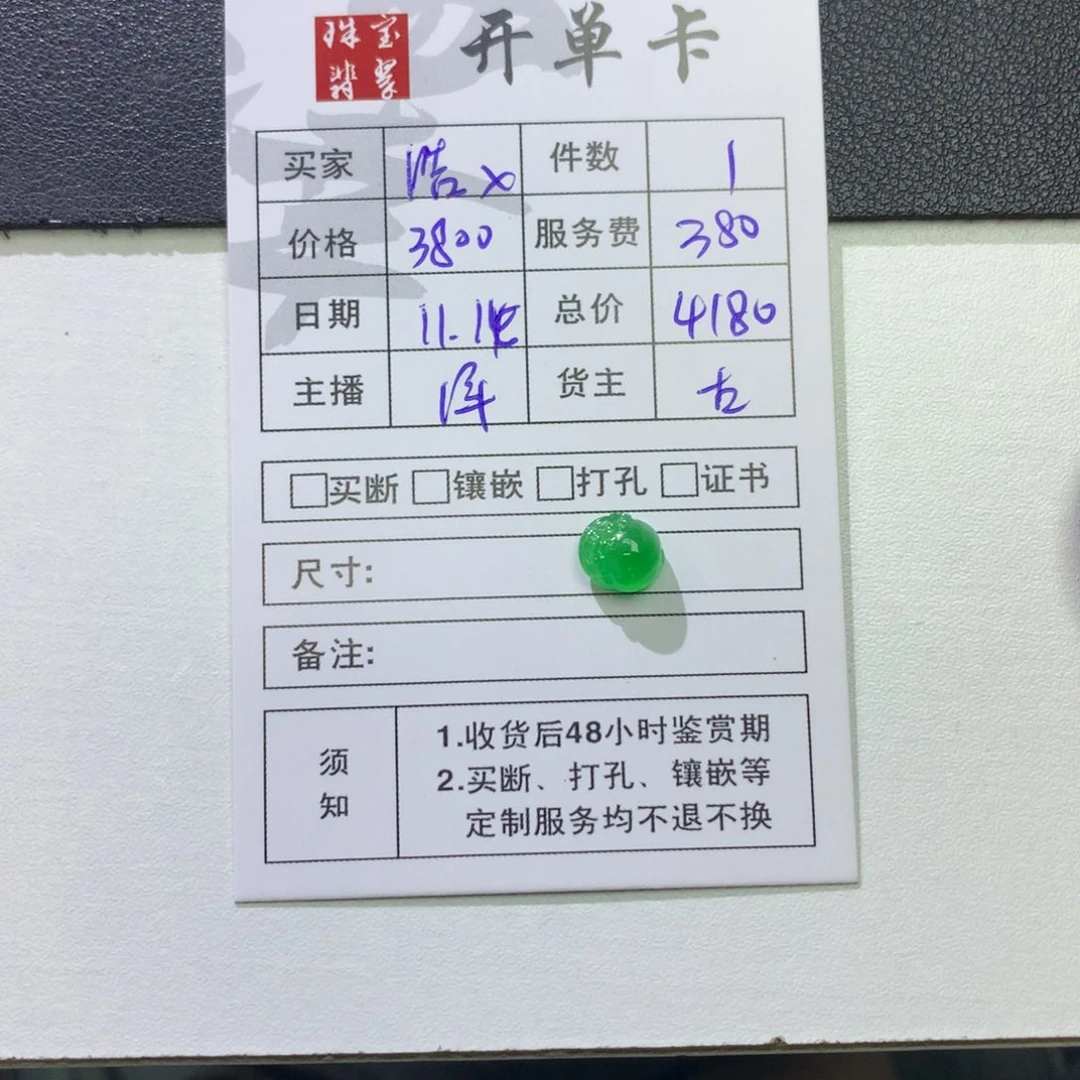 珠宝
翡翠
开单卡
买家 浩x 件数 1
价格 3800 服务费 380
日期 11.14 总价 4180
主播 泽 货主 古
买断 镶嵌 打孔 证书
尺寸:
备注:
须知
1.收货后48小时鉴赏期
2.买断、打孔、镶嵌等
定制服务均不退不换